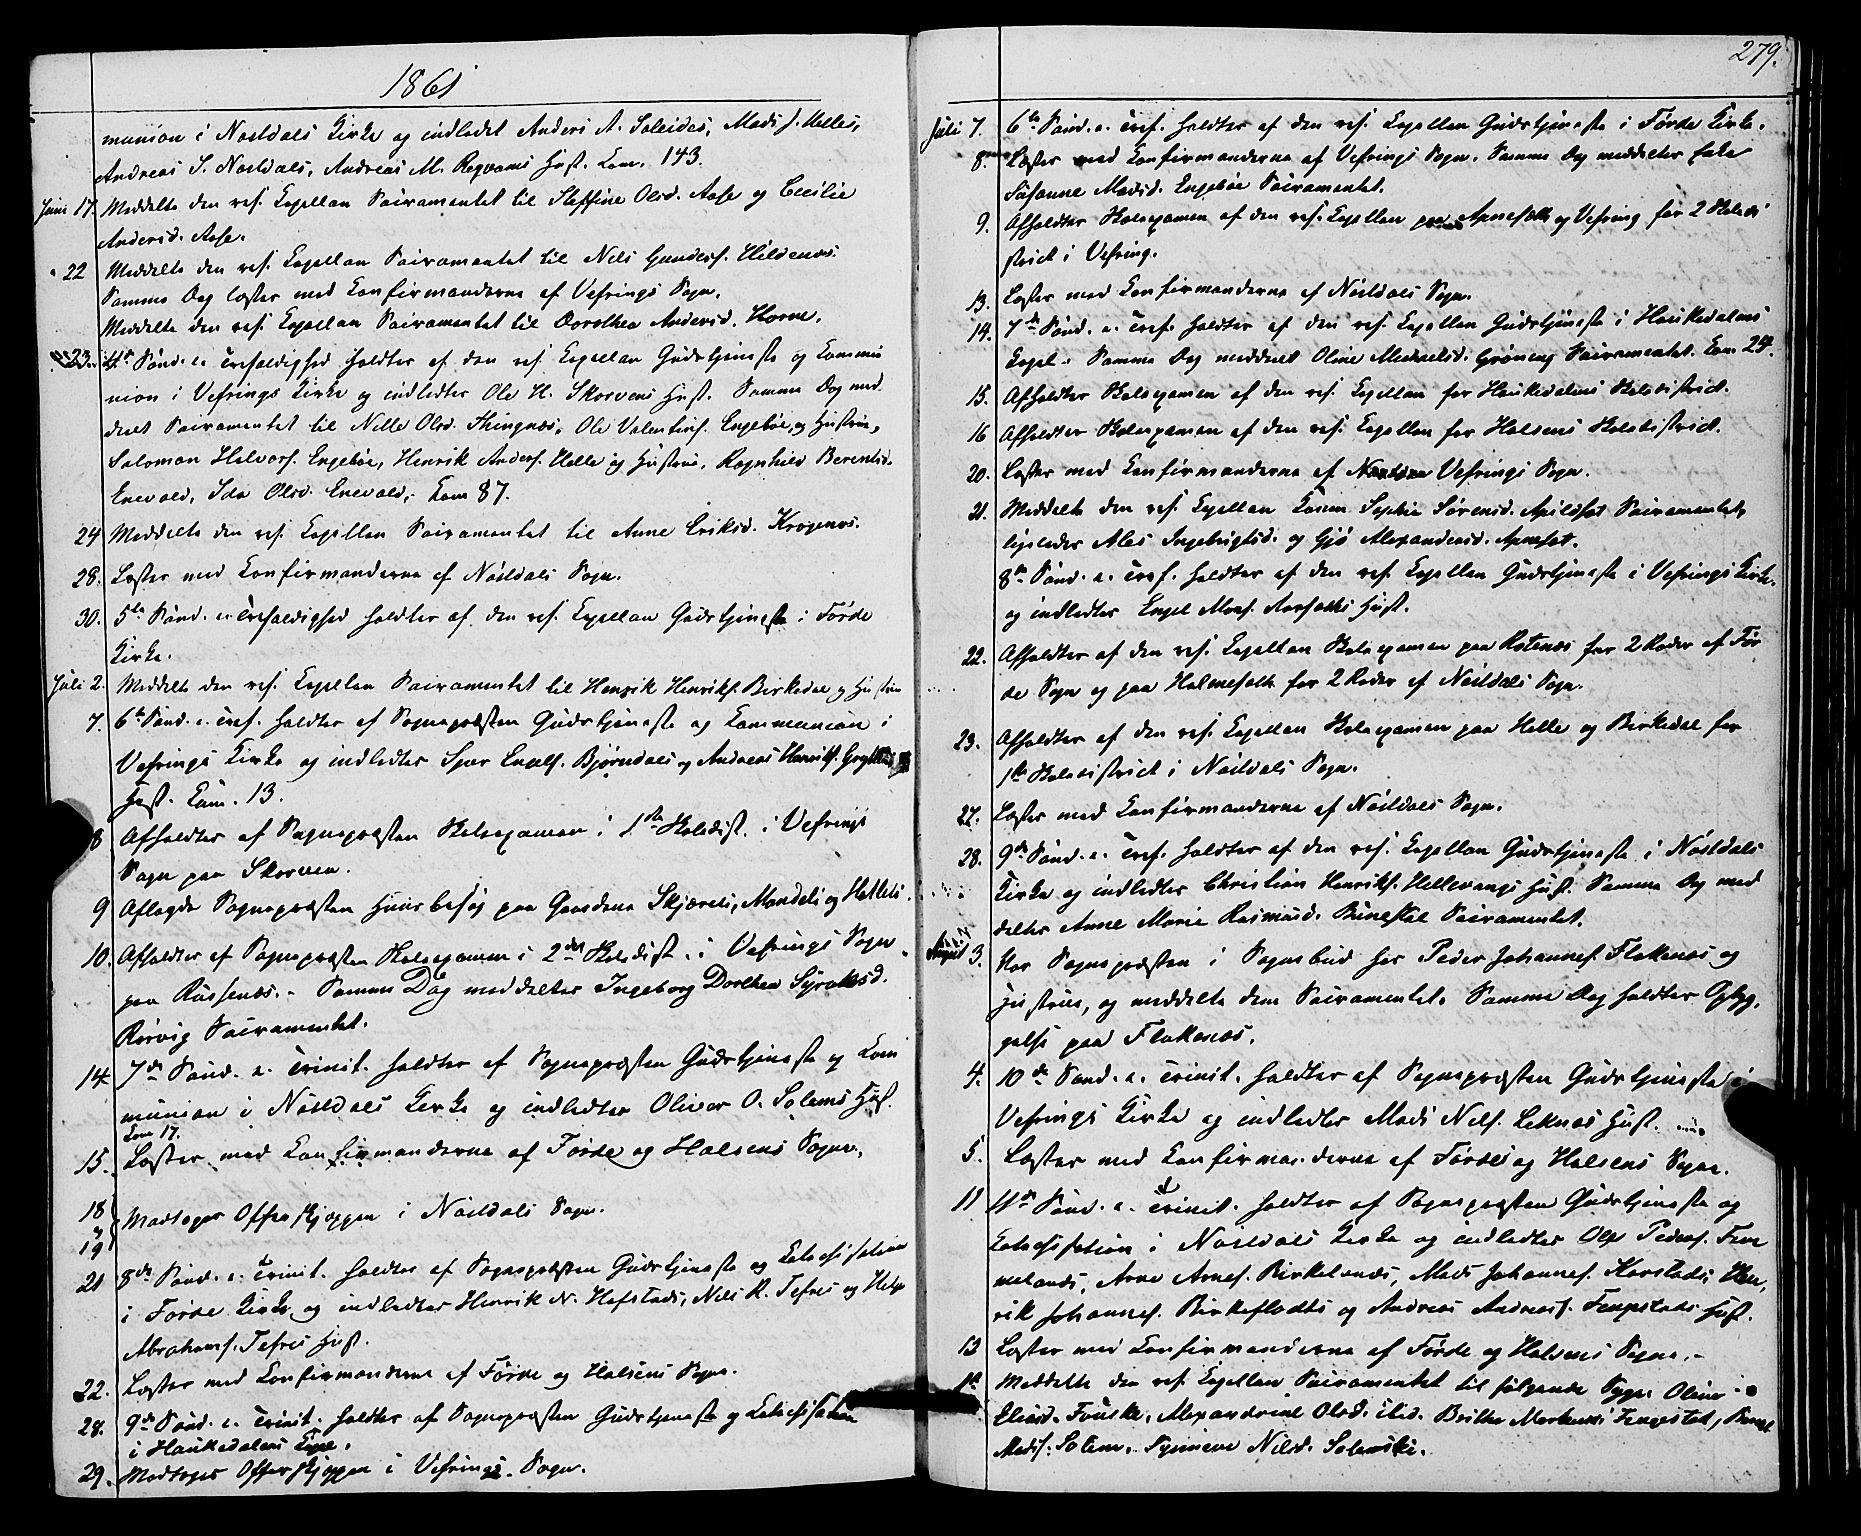 1861
munion i Nøsldals Kirke og indledet Anders A. Soleides, Mads J. Helles,
Andreas S. Nøsldals, Andreas M. Regvams Hust. Com. 143.
Juni 17. Meddelte den res. Capellan Sacramentet til Steffine Olsd. Aase og Cecilie
Andersd. Aase.
" 22 Meddelte den res. Capellan Sacramentet til Nils Gunders. Hildenæs.
Samme Dag læstes med Confirmanderne af Vefrings Sogn.
Meddelte den res. Capellan Sacramentet til Dorothea Andersd. Horne.
23. 4de Sønd. e. Trefoldighed holdtes af den res. Capellan Gudstjeneste og Commu
nion i Vefrings Kirke og indledtes Ole H. Skorvens Hust. Samme Dag med
deelt Sacramentet til Nille Olsd. Thingnæs, Ole Valentins. Engebøe, og Hustrue,
Salomon Halvors. Engebøe, Henrik Anders. Helle og Hustrue, Ragnhild Berentsd.
Enevald, Ida Olsd. Enevald, Com 87.
24 Meddelte den res. Capellan Sacramentet til Anne Eriksd. Krogenæs.
28. Læstes med Confirmanderne af Nøsldals Sogn.
30. 5te Sønd. e. Trefoldighed holdtes af den res. Capellan Gudstjeneste i Førde
Kirke.
Juli 2. Meddelte den res. Capellan Sacramentet til Henrik Henriks. Birkedal og Hustrue
7. 6te Sønd. e. Tref. holdtes af Sognepræsten Gudstjeneste og Communion i
Vefrings Kirke og indledtes Ivar Enolfs. Bjørndals og Andreas Henriks.
Hust. Com. 13.
8 Afholdtes af Sognepræsten Skoleexamen i 1ste Skoledist. i Vefrings
Sogn paa Skorven.
9 Aflagde Sognepræsten Huusbesøg paa Gaardene Skjæreli, Mondeli og Hetleli.
10. Afholdtes af Sognepræsten Skoleexamen i 2det Skoledist. i Vefrings Sogn
paa Russenæs. - Samme Dag meddeltes Ingeborg Dorthea Syraksd.
Rørvig Sacramentet.
14. 7de Sønd. e. Trinit. holdtes af Sognepræsten Gudstjeneste og Com
munion i Nøsldals Kirke og indledtes Oliver O. Solems Hust.
Com 17.
15. Læstes med Confirmanderne af Førde og Holsens Sogne.
18 og 19 Modtages Offerskjæppen i Nøsldals Sogn.
21 8de Sønd. e. Trinit. holdtes af Sognepræsten Gudstjeneste og Catechisation
i Førde Kirke og indledtes Henrik N. Hafstads, Nils R. Tefres og
Abrahams. Tefres Hust.
22. Læstes med Confirmanderne af Førde og Holsens Sogne.
28. 9de Sønd. e. Trinit. holdtes af Sognepræsten Gudstjeneste og Catechisation
i Haukedalens Capel.
29. Modtages Offerskjæppen i Vefrings Sogn.
279.
Juli 7. 6te Sønd. e. Tref. holdtes af den res. Capellan Gudstjeneste i Førde Kirke.
8. Læstes med Confirmanderne af Vefrings Sogn. Samme Dag meddeltes
Susanne Madsd. Engebøe Sacramentet.
9. Afholdtes Skoleexamen af den res. Capellan paa og Vefring for 2 Skoledi
strict i Vefring.
13. Læstes med Confirmanderne af Nøsldals Sogn.
14. 7de Sønd. e. Tref. holdtes af den res. Capellan Gudstjeneste i Haukedalens
Capel. Samme Dag meddelt Oline Mikkelsd. Grøning Sacramentet. Com. 24.
15. Afholdtes Skoleexamen af den res. Capellan for Haukedalens Skoledistrict.
16 Afholdtes Skoleexamen af den res. Capellan for Holsens Skoledistrict.
20. Læstes med Confirmanderne af Vefrings Sogn.
21. Meddelte den res. Capellan Karen Sophia Sørensd. Apildset Sacramentet,
ligeledes Ales Ingebrigtsd. og Gjø Alexandersd.
8de Sønd. e. Tref. holdtes af den res. Capellan Gudstjeneste i Vefrings Kirke.
og indledtes Engel Mons. Hust.
22. Afholdtes af den res. Capellan Skoleexamen paa Rotenæs for 2 Roder af Før
de Sogn og paa Halmefalk for 2 Roder af Nøsldals Sogn.
23. Afholdtes af den res. Capellan Skoleexamen paa Helle og Birkedal for
1ste Skoledistrict i Nøsldals Sogn.
27. Læstes med Confirmanderne af Nøsldals Sogn.
28. 9de Sønd. e. Tref. holdtes af den res. Capellan Gudstjeneste i Nøsldals
Kirke og indledtes Christian Henriks. Hellevangs Hust. Samme Dag med
deltes Anne Marie Rasmusd. Buneskie Sacramentet.
August 3. Var Sognepræsten i Sognebud hos Peder Johannes. Flokenæs og
Hustrue, og meddelte dem Sacramentet. Samme Dag holdtes Opbyg,
gelse paa Flokenæs.
4. 10de Sønd. e. Trinit. holdtes af Sognepræsten Gudstjeneste i
Vefrings Kirke og indledtes Mads Nels. Leknæs Hust.
5. Læstes med Confirmanderne af Førde og Holsens Sogne.
11 11te Sønd. e. Trinit. holdtes af Sognepræsten Gudstjeneste og
Catechisation i Nøsldals Kirke og indledtes Ole Peders. Fim
melands, Arne Arnes. Birkelands, Mads Johannes. Karstads, Hen,
rik Johannes. Birkeflodts og Andreas Andreas. Hust.
13 Læstes med Confirmanderne af Førde og Holsens Sogne. -
14 Meddelte den res. Capellan Sacramentet til følgende Syge: Oline
Eliasd. Fouske, Alexandrine Olsd. ibid. Brithe Mortensd.
Mads. Solem. Synneve Nilsd.